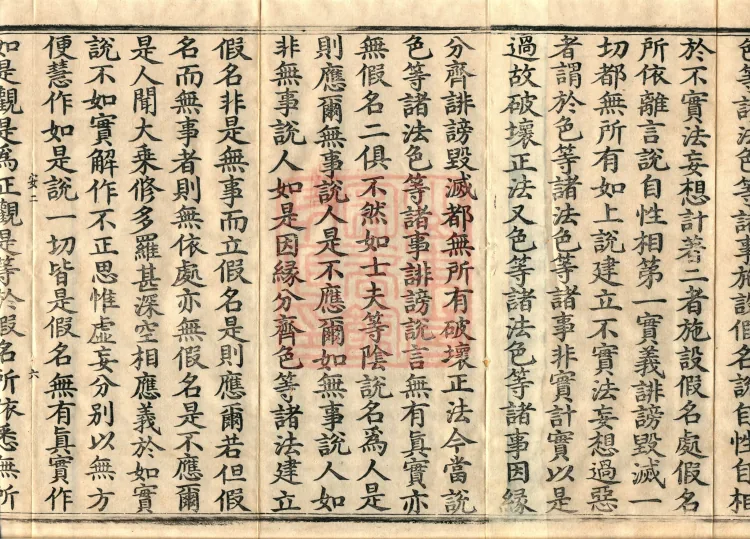 色等諸法色等諸事施設假名說自性自相
於不實法妄想計著二者施設假名處假名
所依離言說自性相第一實義誹謗毀滅一
切都無所有如上說建立不實法妄想過惡
者謂於色等諸法色等諸事非實計實以是
過故破壞正法又色等諸法色等諸事因緣
分齊誹謗毀滅都無所有破壞正法今當說
色等諸法色等諸事誹謗說言無有真實亦
無假名二俱不然如士夫等陰說名為人是
則應爾無事說人是不應爾如無事說人如
非無事說人如是因緣分齊色等諸法建立
假名非是無事而立假名是則應爾若但假
名而無事者則無依處亦無假名是不應爾
是人聞大乘修多羅甚深空相應義於如實
說不如實解作不正思惟虛妄分別以無方
便慧作如是說一切皆是假名無有眞實作
安二 六
如是觀是為正觀是等於假名所依悉無所